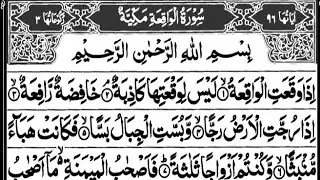 اٰیَاتُهَا ٩٦ سُوْرَةُ الْوَاقِعَةِ مَكِّیَّةٌ رُكُوْعَاتُهَا ٣
بِسْمِ اللّٰهِ الرَّحْمٰنِ الرَّحِیْمِ
اِذَا وَقَعَتِ الْوَاقِعَةُ ۙ١ لَیْسَ لِوَقْعَتِهَا كَاذِبَةٌ ۘ٢ خَافِضَةٌ رَّافِعَةٌ ۙ٣
اِذَا رُجَّتِ الْاَرْضُ رَجًّا ۙ٤ وَّبُسَّتِ الْجِبَالُ بَسًّا ۙ٥ فَكَانَتْ هَبَآءً
مُّنْۢبَثًّا ۙ٦ وَّكُنْتُمْ اَزْوَاجًا ثَلٰثَةً ؕ٧ فَاَصْحٰبُ الْمَیْمَنَةِ ۙ۬ مَاۤ اَصْحٰبُ